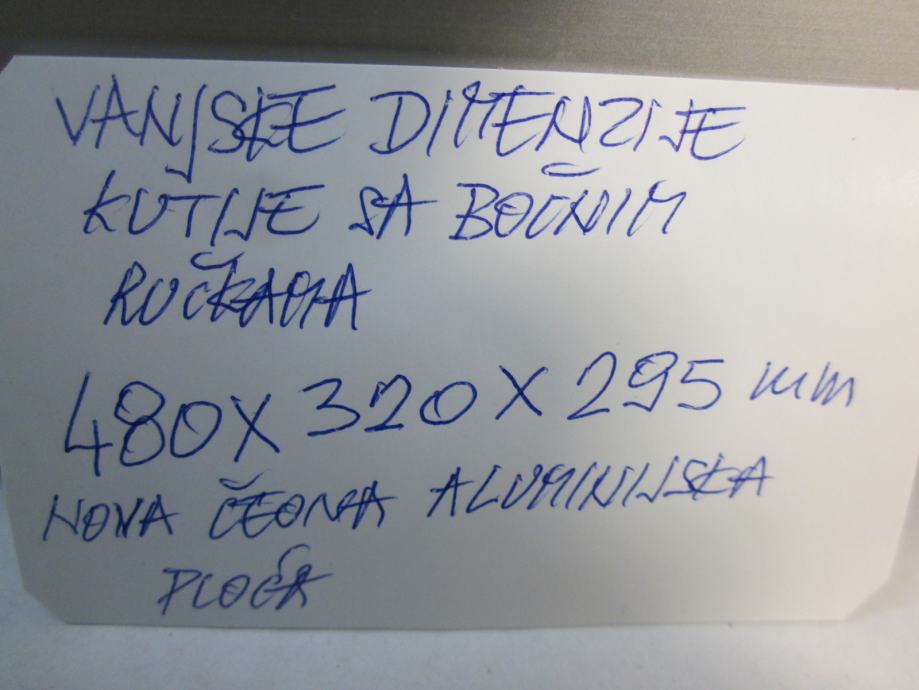 VANJSKE DIMENZIJE
KUTIJE SA BOČNIM
RUČKAMA
480 X 320 X 295 mm
NOVA ČEONA ALUMINIJSKA
PLOČA